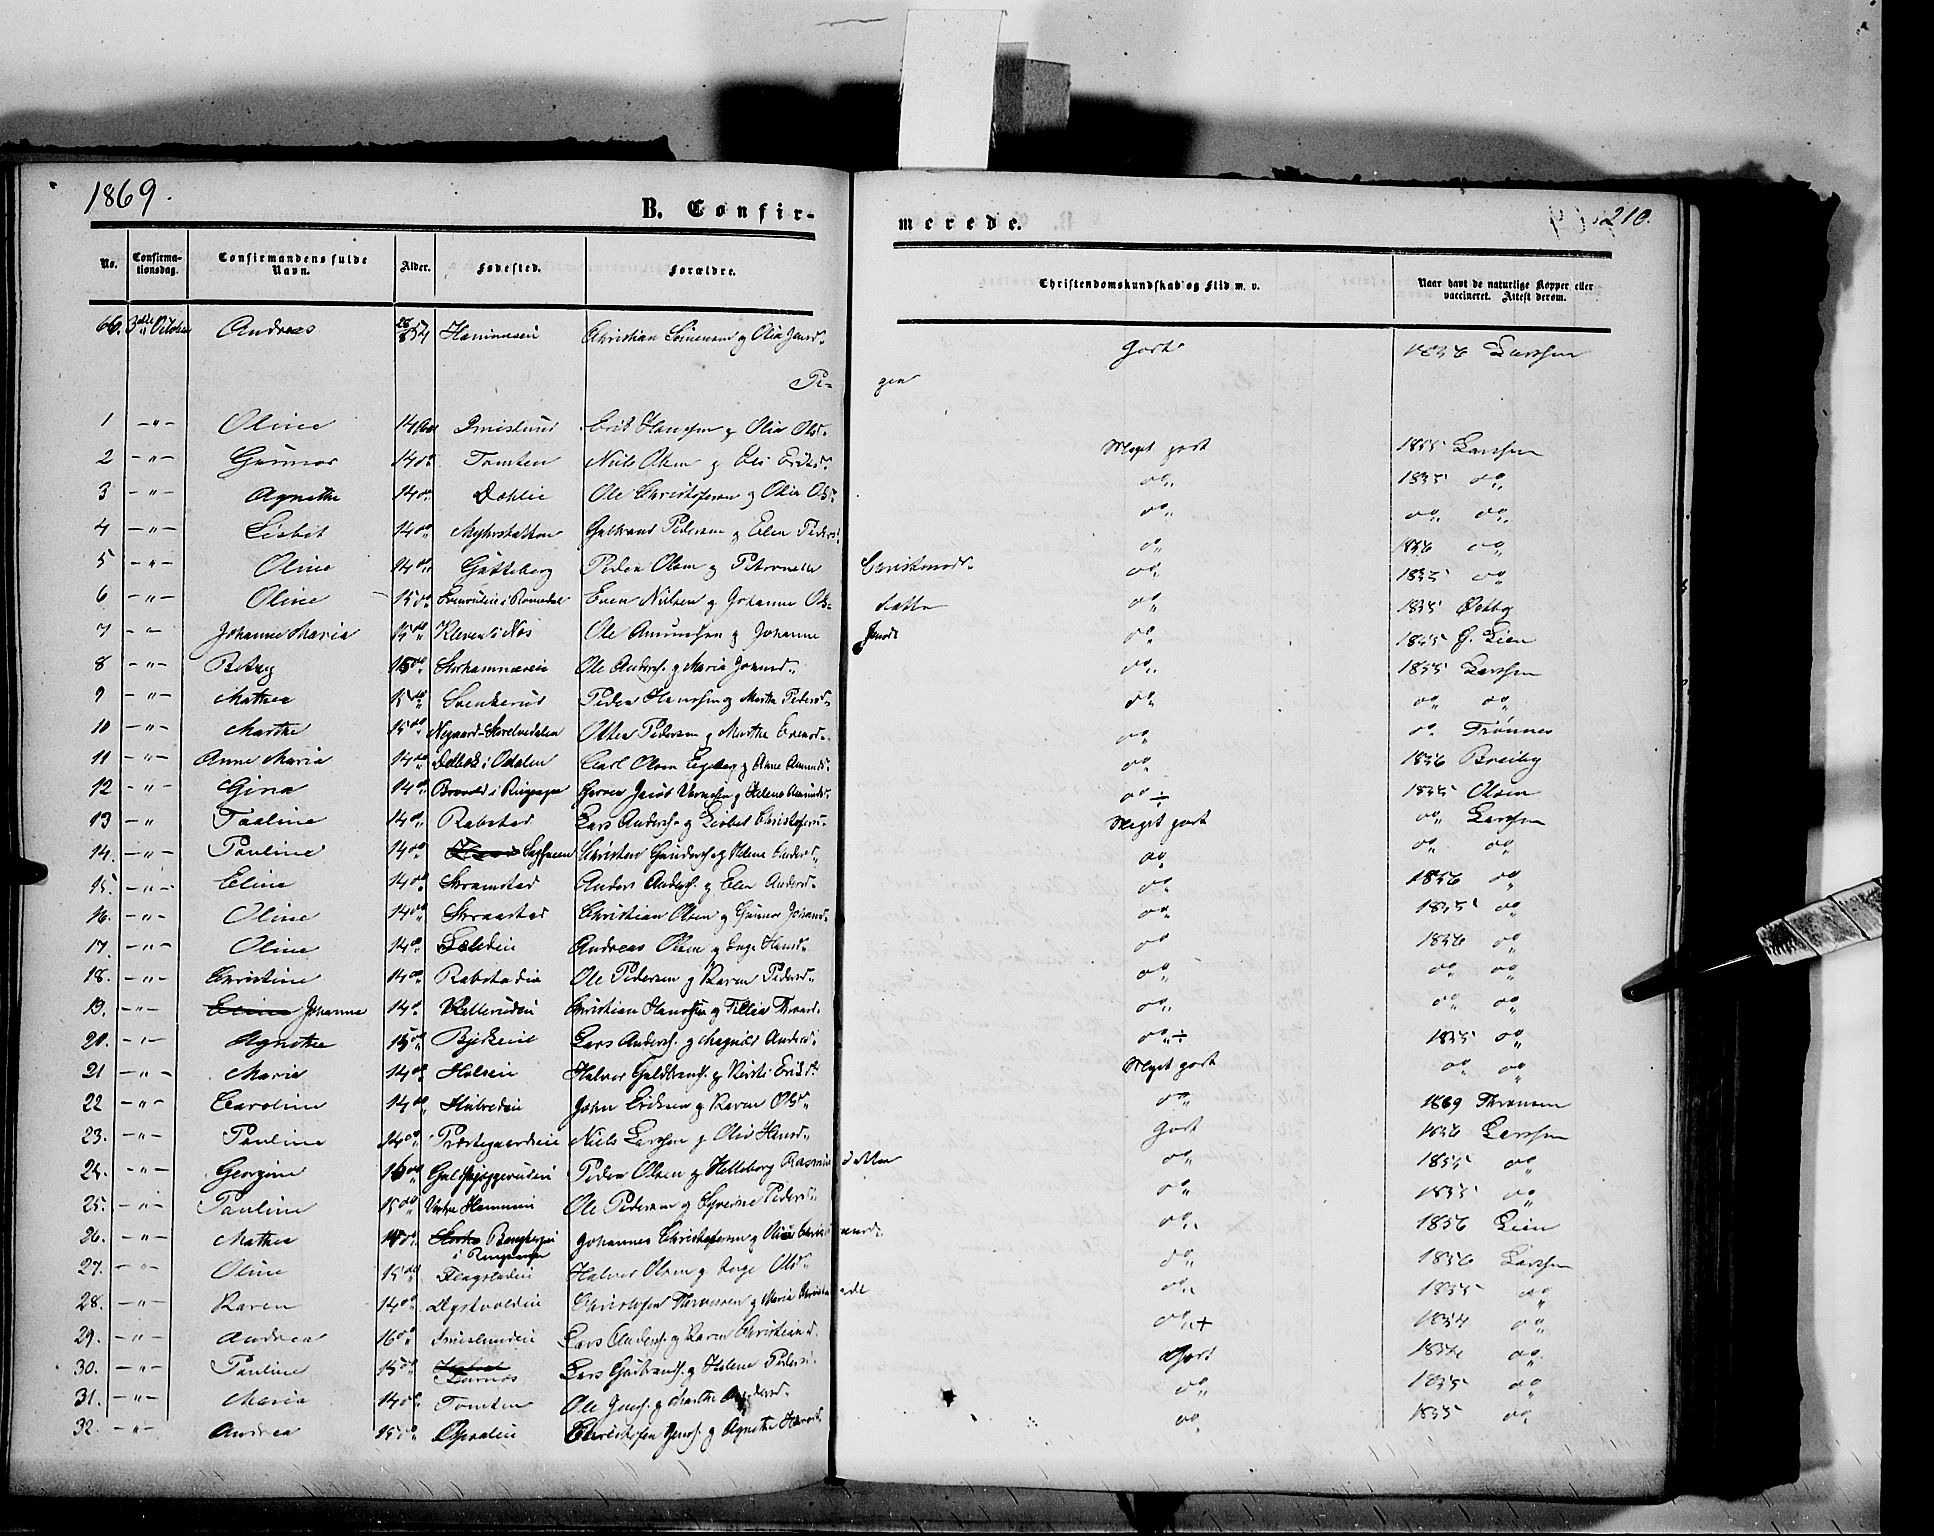 1869.
B. Confir-
merede.
210.
No. Confirma-tionsdag. Confirmandens fulde Navn. Alder. Fødested. Forældre. Christendomskundskab og Flid m. v. Naar havt de naturlige Kopper eller vaccineret. Attest derom.
66. 3die October Andreas Christian Simensen og Olia Jensd. Godt 1856 Larssen
Pi- ger
1 -"- Oline 14 Aar Imislund Erik Hanssen og Olia Olsd. Meget godt 1855 Larssen
2 -"- Gunnor 14 do Tomten Niels Olsen og Eli Eriksd. do 1855 do
3 -"- Agnethe 14 do Dahlie Ole Christofersen og Olia Olsd. do do do
4 -"- Lisbet 14 do Gulbrand Pedersen og Elen Pedersd. do 1856 do
5 -"- Oline 14 do Gutteberg Peder Olsen og Petronelle Christensd. do 1855 do
6 -"- Oline 15 do i Romedal Even Nilsen og Johanne Ols- datter do 1855 Østby
7 -"- Johanne Maria 15 do Kleven i Næs Ole Amundsen og Johanne Jensd. do 1855 G. Lien
8 -"- Betzy 15 do Storhammereie Ole Anders. og Maria Johnsd. do 1855 Larssen
9 -"- Mathea 15 do Svenkerud Peder Hanssen og Marthe Pedersd. do do do
10 -"- Marthe 15 do Negaard-Storelvedalen Otter Pedersen og Marthe Evensd. do do Trønnes
11 -"- Anne Maria 14 do i Odalen Carl Olsen og Anne Amundsd. do 1856 Breiby
12 -"- Gina 14 do i Ringsager Jacob og Helene Amundsd. do ÷ 1855 Olsen
13 -" Pauline 14 do Rabstad Lars Anders. og Lisbet Christofersd. Meget godt do Larssen
14. -"- Pauline 14 do Christen Gunders. og Helene Andersd. do do do
15. -"- Eline 14 do Skramstad Anders Anders. og Elen Andersd. do 1856 do
16. -"- Oline 14 do Skraastad Christian Olsen og Gunnor Johansd. do 1855 do
17. -"- Oline 14 do Andreas Olsen og Inge Hansd. do 1856 do
18. -"- Christine 14 do Rabstadeie Ole Pedersen og Karen Pedersd. do do do
19. -"- Johanne 14 do Christian Hanssen og do do do
20. -"- Agnethe 15 do Bjerkeeie Lars Anders. og Magnild Andersd. do ÷ 1855 do
21 -"- Maria 14 do Holseie Halvor Guldbrands. og Kirsti Eriksd. Meget godt do do
22 -"- Caroline 14 do John Eriksen og Karen Olsd. do 1869 Thrønsen
23. -"- Pauline 14 do Præstegaardseie Niels Larssen og Olia Hansd. Godt 1856 Larssen
24. -"- Georgine 16 do Peder Olsen og Helleborg Rasmus- datter do 1855 do
25. -"- Pauline 15 do Vestre Hammerei Ole Pedersen og Syverine Pedersd. do 1855 do
26. -"- Mathea i Ringsager Johannes Christofersen og Oline do 1856 Lien
27. -"- Oline 15 do Flagstadeie Halvor Olsen og Inge Olsd. do 1856 Larssen
28. -"- Karen 14 do Dystvoldeie Christofer og Maria do 1855 do
29. -"- Andrea 16 do Imislundeie Lars Anders. og Karen Christiansd. do + 1854 do
30. -"- Pauline 15 do Furnæs Lars Gulbrands. og Helene Pedersd. Godt 1854 do
31. -"- Maria 14 do Tomten Ole Jens. og Marthe Andersd. do 1855 do
32. -"- Andrea 15 do Opsaleie Christofer Jens. og Agnethe do 1855 do